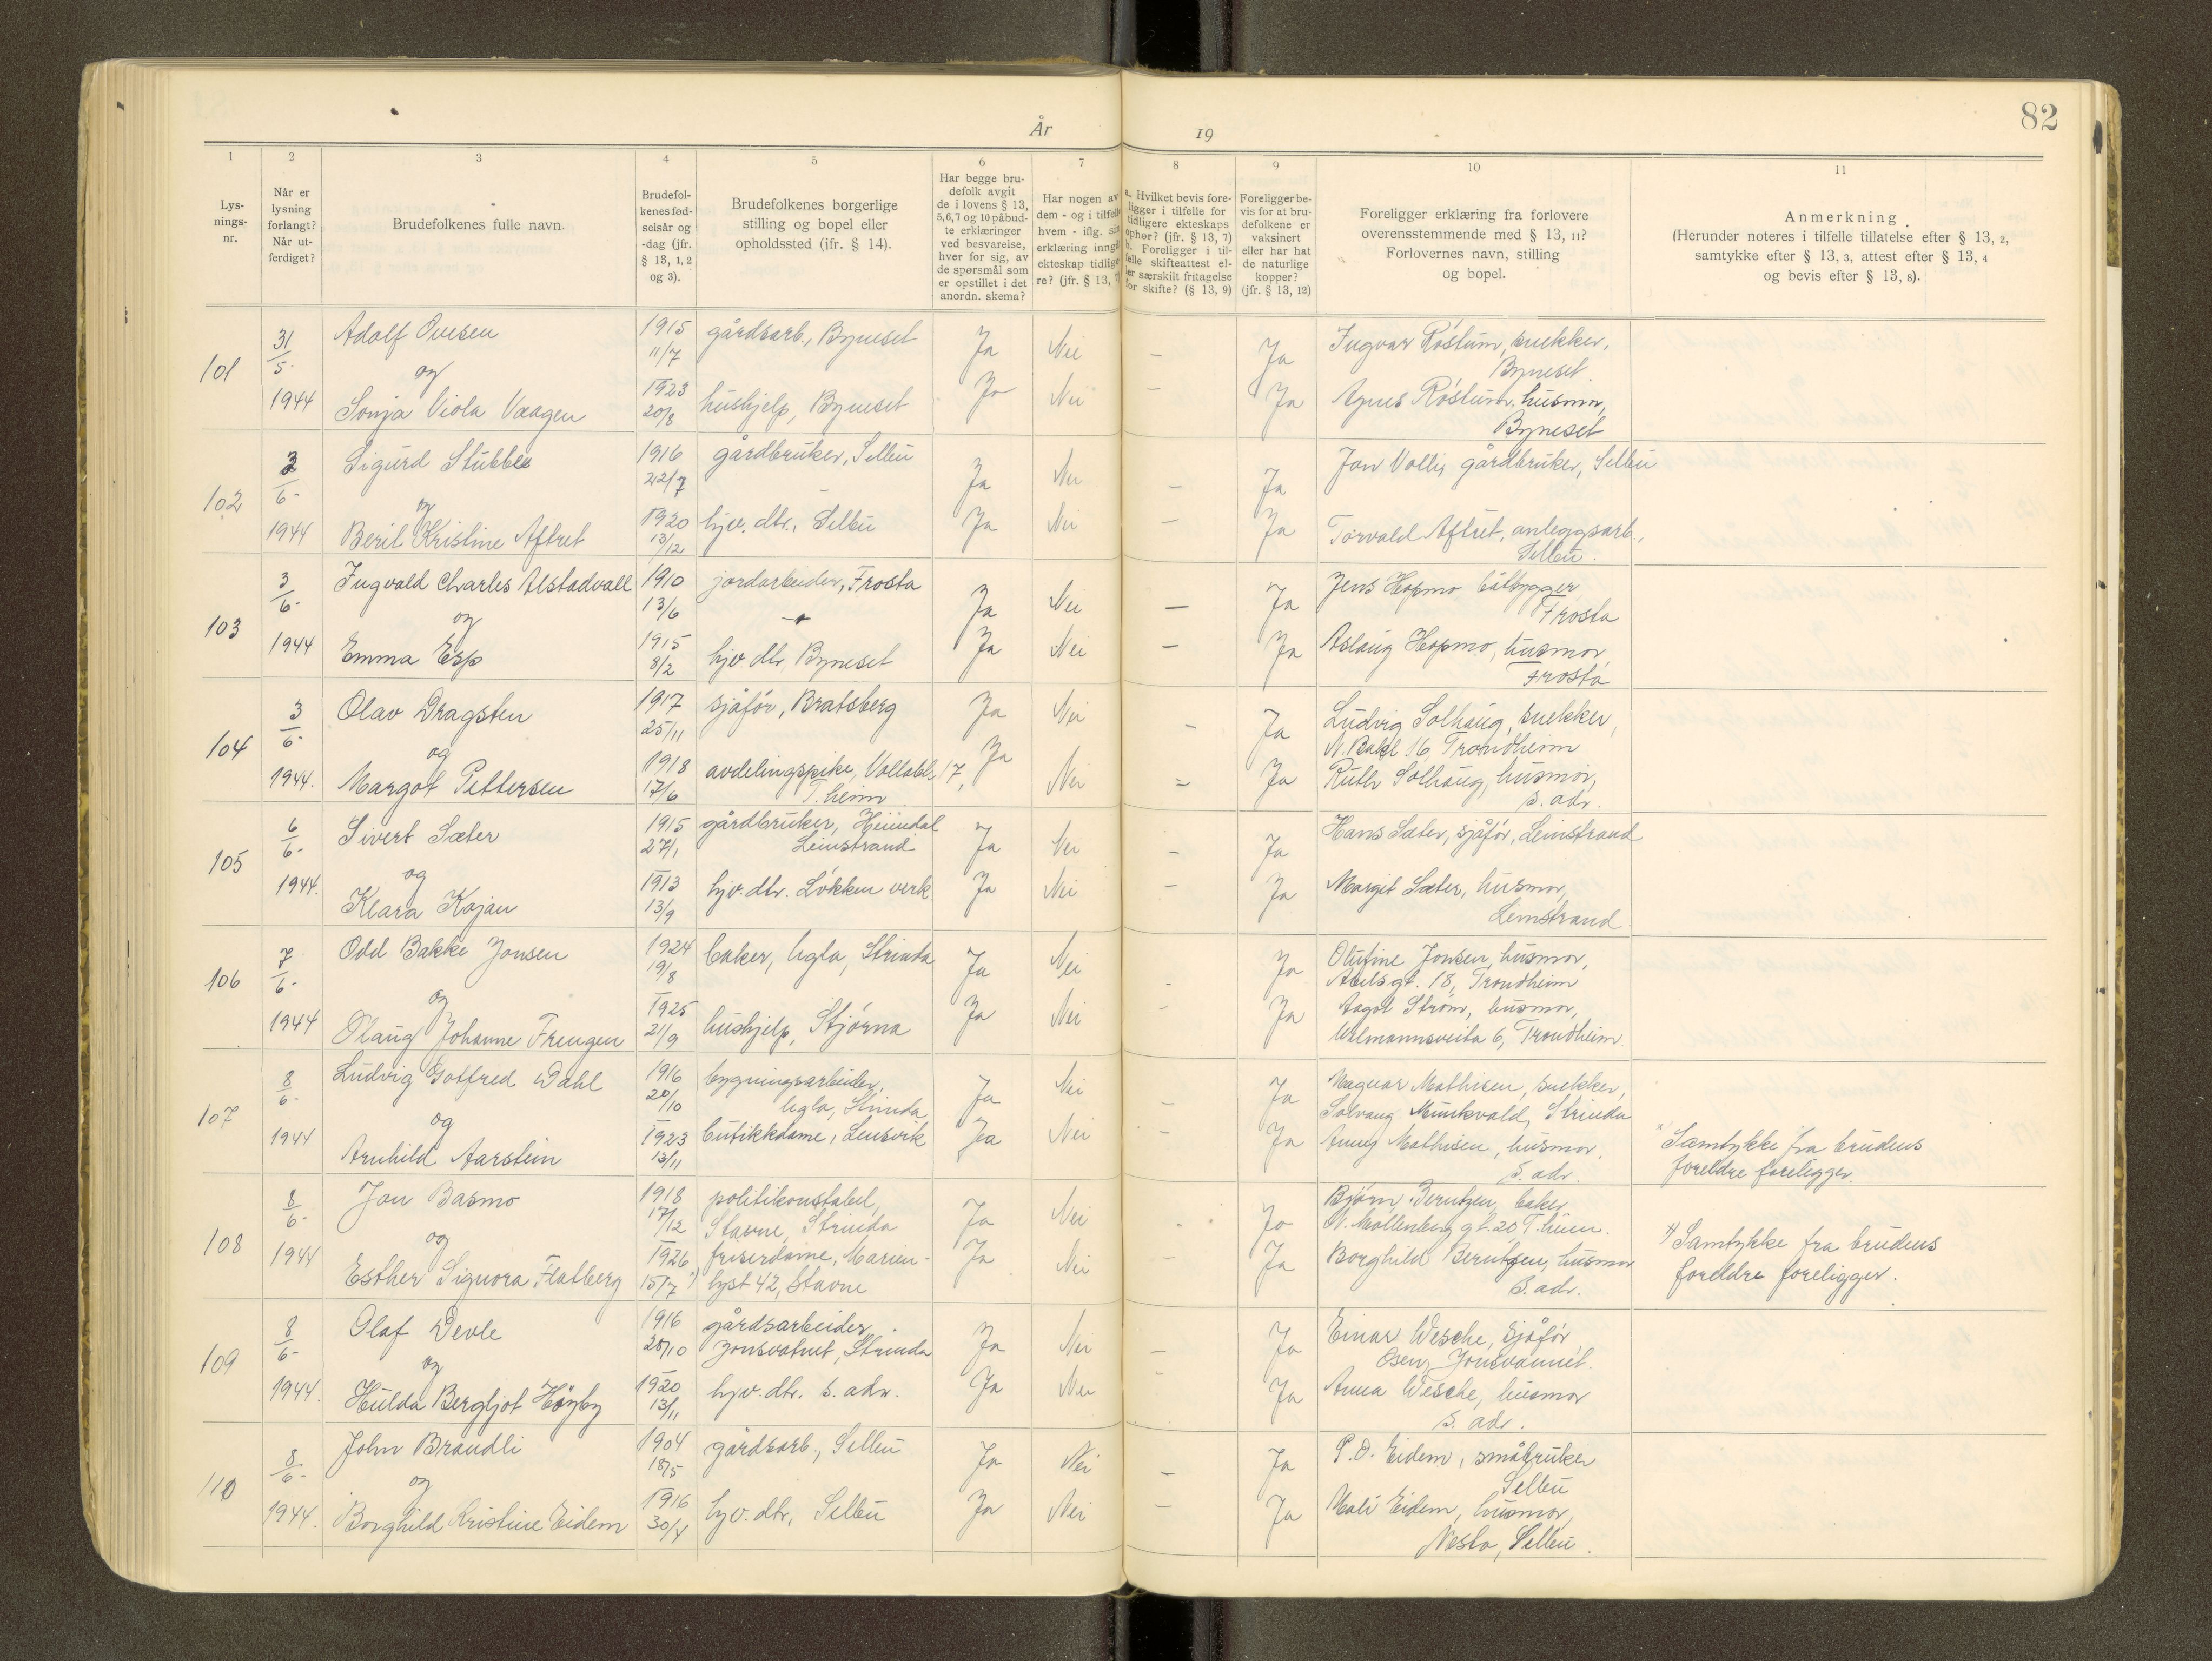 82
År 19
1 2 3 4 5 6 7 8 9 10 11
Lys-
nings-
nr.
Når er
lysning
forlangt?
Når ut-
ferdiget?
Brudefolkenes fulle navn.
Brudefol-
kenes fød-
selsår og
-dag (jfr.
§ 13, 1, 2
og 3).
Brudefolkenes borgerlige
stilling og bopel eller
opholdssted (jfr. § 14).
Har begge bru-
defolk avgit
de i lovens § 13,
5,6,7 og 10 påbud-
te erklæringer
ved besvarelse,
hver for sig, av
de spørsmål som
er opstillet i det
anordn. skema?
Har nogen av
dem - og i tilfelle
hvem - iflg. sin
erklæring inngå
ekteskap tidlige
re? (jfr. § 13,
a. Hvilket bevis fore-
ligger i tilfelle for
tidligere ekteskaps
ophør? (jfr. § 13, 7)
b. Foreligger i til-
felle skifteattest el-
ler særskilt fritagelse
for skifte? (§ 13, 9)
Foreligger be-
vis for at bru-
defolkene er
vaksinert
eller har hat
de naturlige
kopper?
(jfr. § 13, 12)
Foreligger erklæring fra forlovere
overensstemmende med § 13, 11?
Forlovernes navn, stilling
og bopel.
Anmerkning
(Herunder noteres i tilfelle tillatelse efter § 13, 2,
samtykke efter § 13, 3, attest efter § 13, 4
og bevis efter § 13, 8).
101 31/5- 1944
Adolf Ovesen 1915 11/7 gårdsarb., Byneset Ja Nei – Ja Ingvar Röstum, snekker,
Byneset
og
Sonja Viola Vaagen 1923 20/8 hushjelp, Byneset Ja Nei – Ja Agnes Röstum, husmor,
Byneset
102 3/6- 1944
Sigurd Stubbe 1916 22/7 gårdbruker, Selbu Ja Nei – Ja Jon Volli, gårdbruker, Selbu
og
Beril Kristine Aftret 1920 13/12 hjv. dtr., Selbu Ja Nei – Ja Torvald Aftret, anleggsarb.,
Selbu.
103 3/6- 1944
Ingvald Charles Alstadvall 1910 13/6 jordarbeider, Frosta Ja Nei – Ja Jens Hopmo, båtbygger
Frosta
og
Emma Esp 1915 8/2 hjv dtr, Byneset Ja Nei – Ja Aslaug Hopmo, husmor,
Frosta
104 3/6- 1944.
Olav Dragsten 1917 25/11 sjåför, Bratsberg Ja Nei – Ja Ludvig Solhaug, snekker,
N. Bakl 16, Trondheim
og
Margot Pettersen 1918 17/6 avdelingspike, Vollabk. 17, Ja Nei – Ja Ruth Solhaug, husmor,
T.heim s. adr.
105 6/6- 1944.
Sivert Sæter 1915 27/1 gårdbruker, Heimdal Ja Nei – Ja Hans Sæter, sjåför, Leinstrand
Leinstrand
og
Klara Kojan 1913 13/9 hjv. dtr. Lökken verk Ja Nei – Ja Margit Sæter, husmor,
Leinstrand
106 7/6- 1944
Odd Bakke Jonsen 1924 19/8 baker, Ugla, Strinda Ja Nei - Ja Olufine Jonsen, husmor,
Abels gt. 18, Trondheim
og
Olaug Johanne Frengen 1925 21/9 hushjelp, Stjörna Ja Nei - Ja Aagot Ström, husmor,
Ulmannsveita 6, Trondheim.
107 8/6- 1944
Ludvig Gotfred Dahl 1916 20/10 bygningsarbeider, Ja Nei – Ja Magnar Mathisen, snekker,
Ugla, Strinda Solvang Munkvold, Strinda
og
Arnhild Aarstein 1923 13/11 butikkdame, Lensvik Ja Nei – Ja Anny Mathisen, husmor.
s. adr.
Samtykke fra brudens
foreldre foreligger.
108 8/6- 1944
Jon Basmo 1918 17/12 politikonstabel, Ja Nei - Ja Björn Berntzen, baker
Stavne, Strinda N. Möllenberg gt. 20 T.heim.
og
Esther Signora Flatberg 1926 15/7 x) friserdame, Marien- Ja Nei – Ja Borghild Berntzen, husmor
lyst 42, Stavne s. adr.
x) Samtykke fra brudens
foreldre foreligger.
109 8/6- 1944.
Olaf Devle 1916 28/10 gårdsarbeider. Ja Nei – Ja Einar Wesche, sjåför,
Jonsvatnet, Strinda Osen, Jonsvannet.
og
Hulda Bergljot Höyby 1920 13/11 hjv. dtr. s. adr. Ja Nei – Ja Anna Wesche, husmor
s. adr.
110 8/6- 1944.
John Brandli 1904 18/5 gårdsarb., Selbu Ja Nei – Ja P. O. Eidem, småbruker
Selbu
og
Borghild Kristine Eidem 1916 30/4 hjv. dtr, Selbu Ja Nei – Ja Mali Eidem, husmor,
Nesta, Selbu.